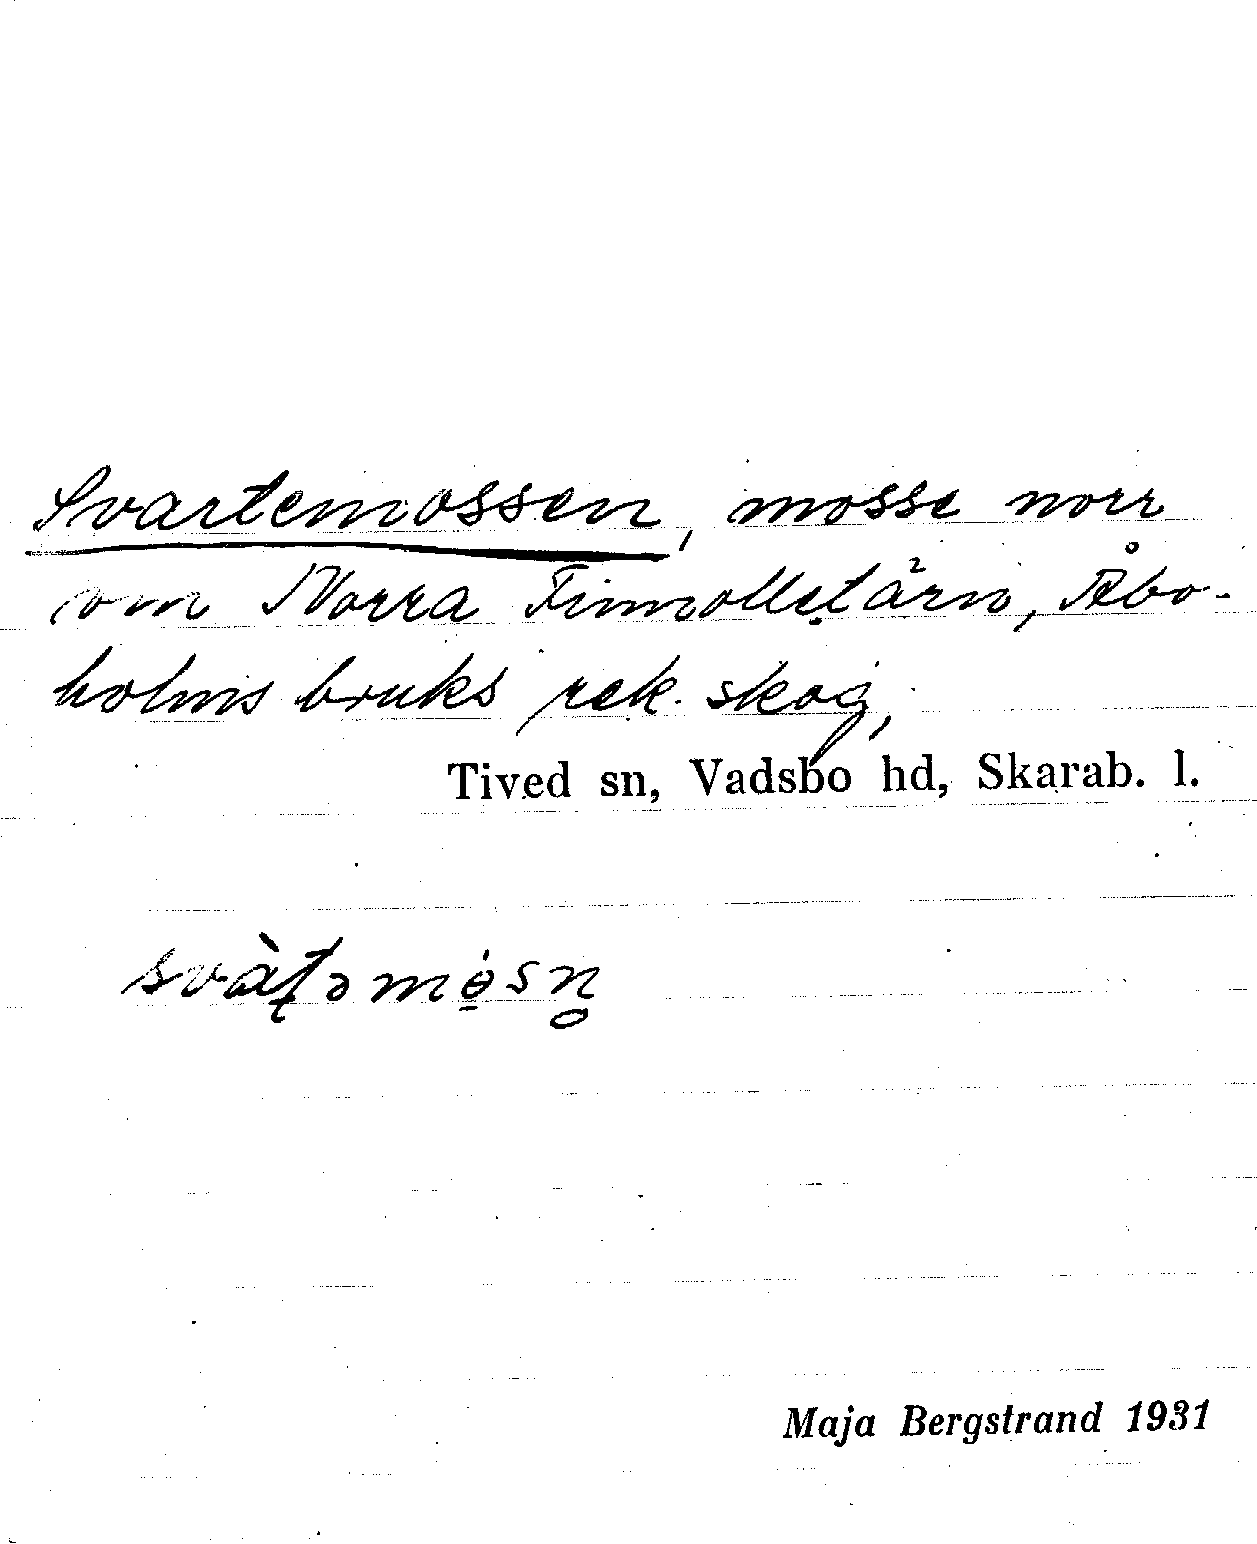 Svartemossen, mosse norr
om Norra Finnolletärn, Åbo-
holms bruks rek. skog,
Tived sn, Vadsbo hd, Skarab. l.
svàʈəmösn̥
Maja Bergstrand 1931